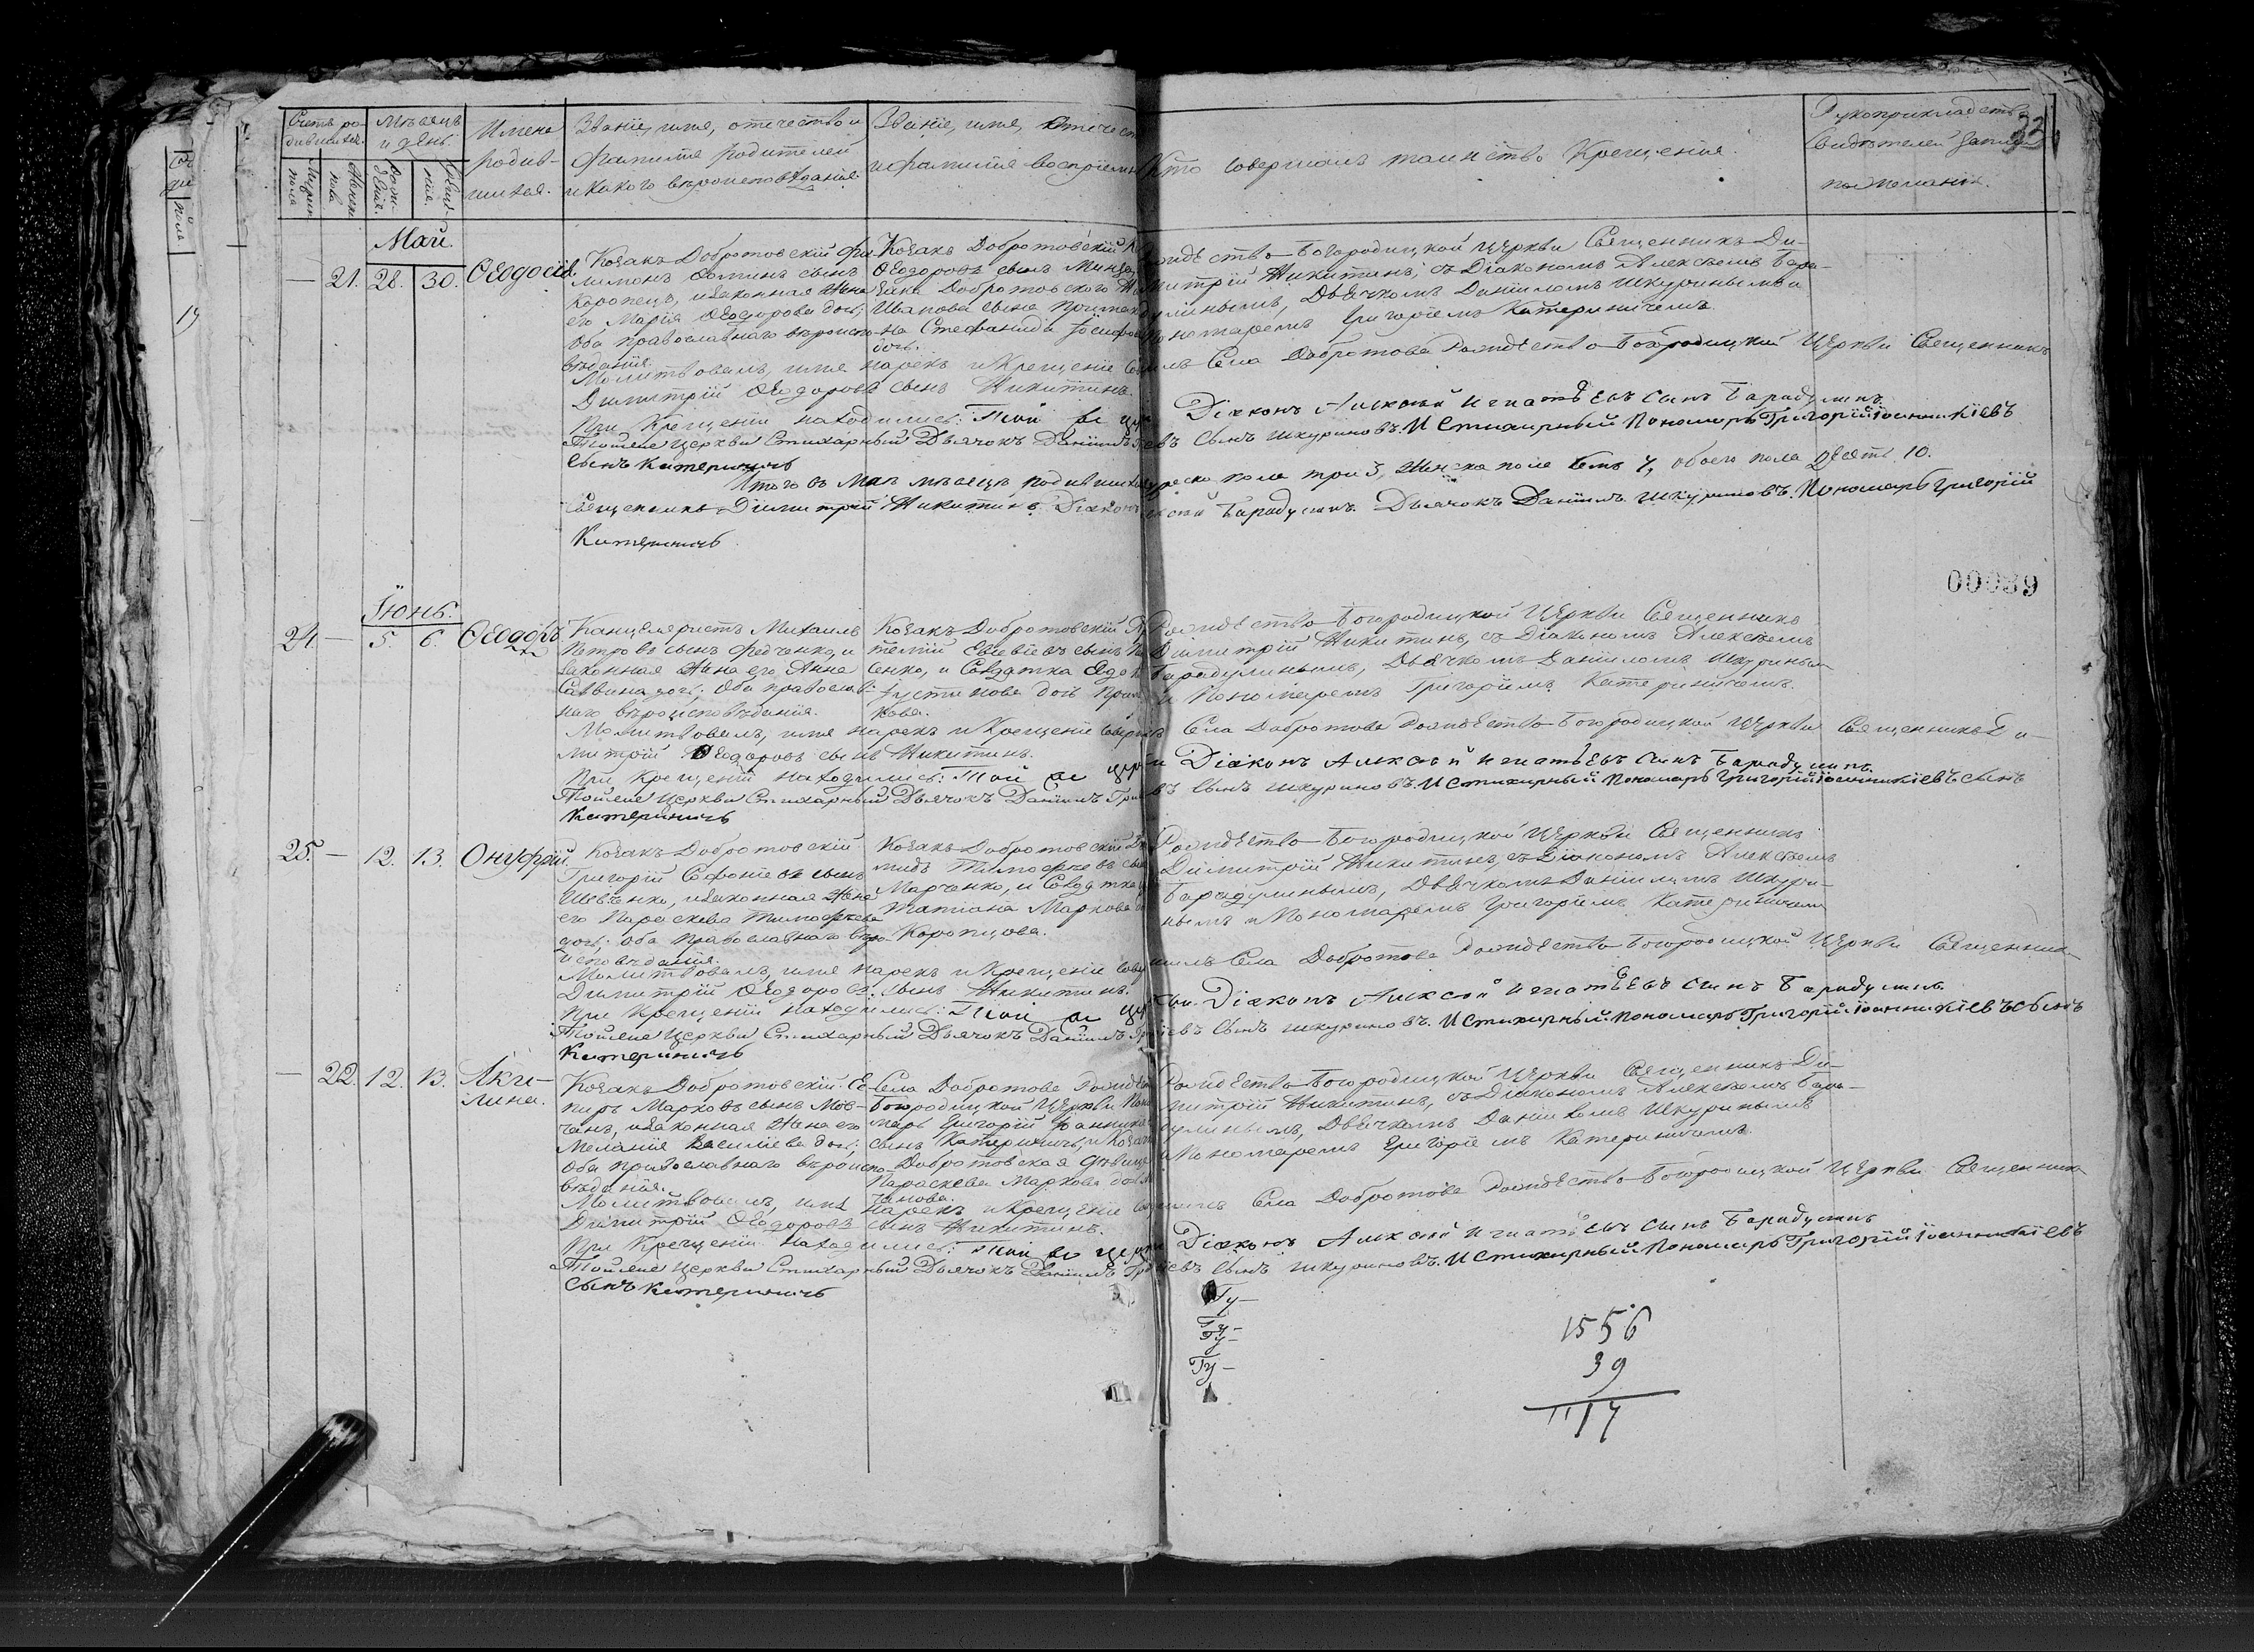 Счетъ ро-
дившихся.
Мѣсяцъ
и день.
Имена
родив-
шихся.
Званіе, имя, отечество и
фамилія родителей
и какого вѣроисповѣданія.
Званіе, имя, отечест
и фамилія воспріемн
Кто совершалъ таинство Крещенія.
Рукоприкладство
свидѣтелей записи
по желанію.
Май.
— 21. 28. 30. Ѳеодосія.
Козакъ Добротовскій Фи-
лимонъ сынъ
Коропецъ, и законная жена
его Марія Ѳеодорова дочь;
оба православнаго вѣроиспо-
вѣданія.
Козакъ Добротовскій
Ѳеодоровъ сынъ
Добротовского
Иванова сына
на Стефанида Іосифова
дочь.
Рождество-Богородицкой Церкви Священникъ Ди-
митрій Никитинъ, съ Діакономъ Алексѣемъ Бара-
дулинымъ, Дьячкомъ Даніиломъ Шкуринымъ и
Пономаремъ Григоріемъ Катериничемъ.
Молитвовалъ, имя нарекъ и Крещеніе совершилъ Села Добротова Рождество-Богородицкой Церкви Священникъ
Димитрій Ѳеодоровъ сынъ Никитинъ.
При Крещеніи находились: Той же церкви Діаконъ Алексѣй Игнатьевъ сынъ Барадулинъ
Тойже Церкви Стихарный Дьячокъ Даніилъ сынъ Шкуриновъ. И Стихарный Пономарь Григорій Іоанникіевъ
сынъ Катериничь
Итого въ Маѣ мѣсяцѣ родившихся мужеска пола три 3, женска пола семь 7, обоего пола десять 10.
Священникъ Димитрій Никитинъ. Діаконъ Алексѣй Барадулинъ. Дьячокъ Даніилъ Шкуриновъ. Пономарь Григорій
Катериничь
00039
Іюнь.
24. — 5. 6. Ѳеодоръ
Канцеляристъ Михаилъ
Петровъ сынъ Федченко, и
законная жена его Анна
Саввина дочь; оба православ-
наго вѣроисповѣданія.
Козакъ Добротовскій
Евсевіевъ сынъ
сенко, и Солдатка
Густинова дочь
кова.
Рождество-Богородицкой Церкви Священникъ
Димитрій Никитинъ, съ Діакономъ Алексѣемъ
Барадулинымъ, Дьячкомъ Даніиломъ Шкуринымъ
и Пономаремъ Григоріемъ Катериничемъ.
Молитвовалъ, имя нарекъ и Крещеніе совершилъ Села Добротова Рождество-Богородицкой Церкви Священникъ Ди-
митрій Ѳеодоровъ сынъ Никитинъ.
При Крещеніи находились: Той же церкви Діаконъ Алексѣй Игнатьевъ сынъ Барадулинъ.
Тойже Церкви Стихарный Дьячокъ Даніилъ сынъ Шкуриновъ. И Стихарный Пономарь Григорій Іоанникіевъ сынъ
Катериничь
25. — 12. 13. Онуфрій.
Козакъ Добротовскій
Григорій Софоніевъ сынъ
Шевченко, и законная жена
его Параскева Тимофеева
дочь; оба православнаго вѣро-
исповѣданія.
Козакъ Добротовскій
мидъ Тимофеевъ сынъ
Марченко, и Солдатка
Татіана Маркова
Коропцова.
Рождество-Богородицкой Церкви Священникъ
Димитрій Никитинъ, съ Діакономъ Алексѣемъ
Барадулинымъ, Дьячкомъ Даніиломъ Шкури-
нымъ и Пономаремъ Григоріемъ Катериничемъ
Молитвовалъ, имя нарекъ и Крещеніе совершилъ Села Добротова Рождество-Богородицкой Церкви Священникъ
Димитрій Ѳеодоровъ сынъ Никитинъ.
При Крещеніи находились: Той же церкви Діаконъ Алексѣй Игнатьевъ сынъ Барадулинъ
Тойже Церкви Стихарный Дьячокъ Даніилъ сынъ Шкуриновъ. И Стихарный Пономарь Григорій Іоанникіевъ сынъ
Катериничь
— 22. 12. 13. Аки-
лина.
Козакъ Добротовскій
Марковъ сынъ Мов-
чанъ, и законная жена его
Меланія Василіева дочь;
оба православнаго вѣроиспо-
вѣданія.
Села Добротова Рождество
Богородицкой Церкви Поно-
марь Григорій Іоанникіевъ
сынъ Катериничь, и Козачья
Добротовская дѣвица
Параскева Маркова дочь
чанова.
Рождество-Богородицкой Церкви Священникъ Ди-
митрій Никитинъ, съ Діакономъ Алексѣемъ Бара-
дулинымъ, Дьячкомъ Даніиломъ Шкуринымъ
и Пономаремъ Григоріемъ Катериничемъ.
Молитвовалъ, имя нарекъ и Крещеніе совершилъ Села Добротова Рождество-Богородицкой Церкви Священникъ
Димитрій Ѳеодоровъ сынъ Никитинъ.
При Крещеніи находились: Той же церкви Діаконъ Алексѣй Игнатьевъ сынъ Барадулинъ
Тойже Церкви Стихарный Дьячокъ Даніилъ сынъ Шкуриновъ. И Стихарный Пономарь Григорій Іоанникіевъ
сынъ Катериничь
1556
39
1117